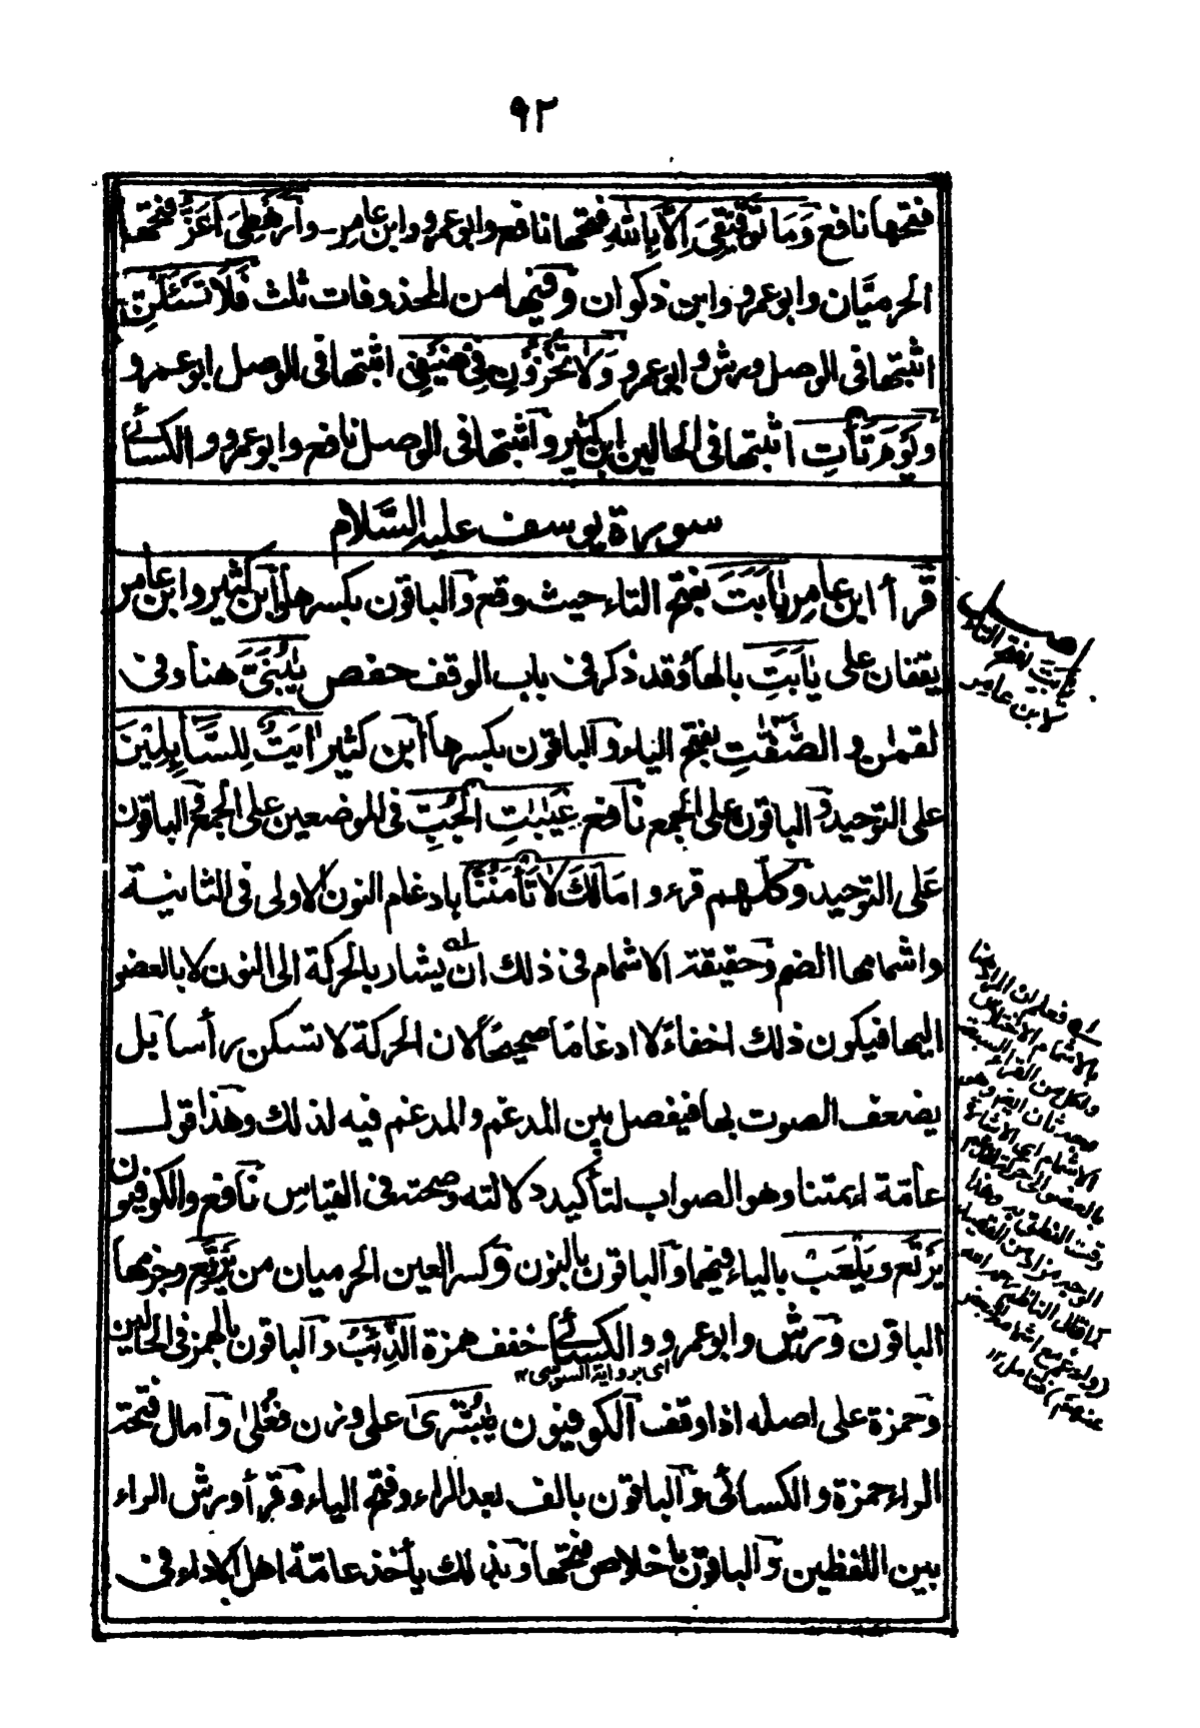 ٩٢
فتحها نافع وَمَا تَوْفِيْقِىَ اِلَّا بِاللّٰهِ فتحها نافع وابو عمرو وابن عامر وأَرَهْطِىَ اَعَزُّ فتحها
الحرميَّان وابو عمرو وابن ذكوان وفيها من المحذوفات ثلث فَلَا تَسْئَلْنِ
اثبتها فى الوصل ورش وابو عمرو وَلَا تُخْزُوْنِ فِىْ ضَيْفِىْ اثبتها فى الوصل ابو عمرو
وَيَوْمَ يَأْتِ اثبتها فى الحالين ابن كثير واثبتها فى الوصل نافع وابو عمرو والكسائى
سورة يوسف عليه السَّلام
قرأ ابن عامر يٰاَبَتَ بفتح التاء حيث وقع والباقون بكسرها وابن كثير وابن عامر
يقفان على يٰاَبَتِ بالهاء وقد ذكر فى باب الوقف حفص يٰبُنَىَّ هنا وفى
لقمٰن والصّٰفّٰتِ بفتح الياء والباقون بكسرها ابن كثير اٰيَتٌ لِلسَّآئِلِيْنَ
على التوحيد والباقون على الجمع نافع غَيٰبٰتِ الْجُبِّ فى الموضعين على الجمع والباقون
عَلى التوحيد وكلّهم قرءوا مَالَكَ لَا تَأْمَنَّا بادغام النون الاولى فى الثانية
واشمامها الضم وحقيقة الاشمام فى ذلك ان يشار بالحركة الى النون لا بالعضو
اليها فيكون ذلك اخفاءً لا ادغامًا صحيحًا لان الحركة لا تسكن رأسا بل
يضعف الصوت بها فيفصل بين المدغم والمدغم فيه لذلك وهذا قول
عامّة ائمتنا وهو الصواب لتأكيد دلالته وصحته فى القياس نافع والكوفيون
يَرْتَعْ وَيَلْعَبْ بالياء فيهما والباقون بالنون وكسر العين الحرميان من يَرْتَعِ وجزمها
الباقون وورش وابو عمرو والكسائى خفف همزة الذِّئْبُ والباقون بالهمز فى الحالين
اى برواية السوسى ١٢
وحمزة على اصله اذا وقف الكوفيون يٰبُشْرٰى على وزن فُعْلٰى وامال فتحة
الراء حمزة والكسائى والباقون بالف بعد الراء وفتح الياء وقرأ ورش الراء
بين اللفظين والباقون باخلاص فتحها وبذلك يأخذ عامّة اهل الاداء فى
يٰاَبَتَ بفتح التاء
لابن عامر
اى فعلم ان المراد هنا
بالاشمام الاختلاس
ولكل من القراء السبعة
وجه ثان
الاشمام اى الاشارة
الوجه
كما قال الناظم رحمه الله
(وادغم مع اشمامه البعض
عنهم) فتامل ١٢